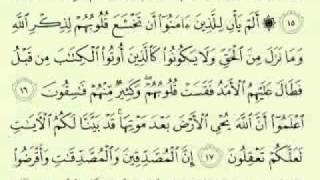 ١٥ ۞ أَلَمْ يَأْنِ لِلَّذِينَ ءَامَنُوٓا۟ أَن تَخْشَعَ قُلُوبُهُمْ لِذِكْرِ ٱللَّهِ
وَمَا نَزَلَ مِنَ ٱلْحَقِّ وَلَا يَكُونُوا۟ كَٱلَّذِينَ أُوتُوا۟ ٱلْكِتَٰبَ مِن قَبْلُ
فَطَالَ عَلَيْهِمُ ٱلْأَمَدُ فَقَسَتْ قُلُوبُهُمْ ۖ وَكَثِيرٌ مِّنْهُمْ فَٰسِقُونَ ١٦
ٱعْلَمُوٓا۟ أَنَّ ٱللَّهَ يُحْىِ ٱلْأَرْضَ بَعْدَ مَوْتِهَا ۚ قَدْ بَيَّنَّا لَكُمُ ٱلْءَايَٰتِ
لَعَلَّكُمْ تَعْقِلُونَ ١٧ إِنَّ ٱلْمُصَّدِّقِينَ وَٱلْمُصَّدِّقَٰتِ وَأَقْرَضُوا۟